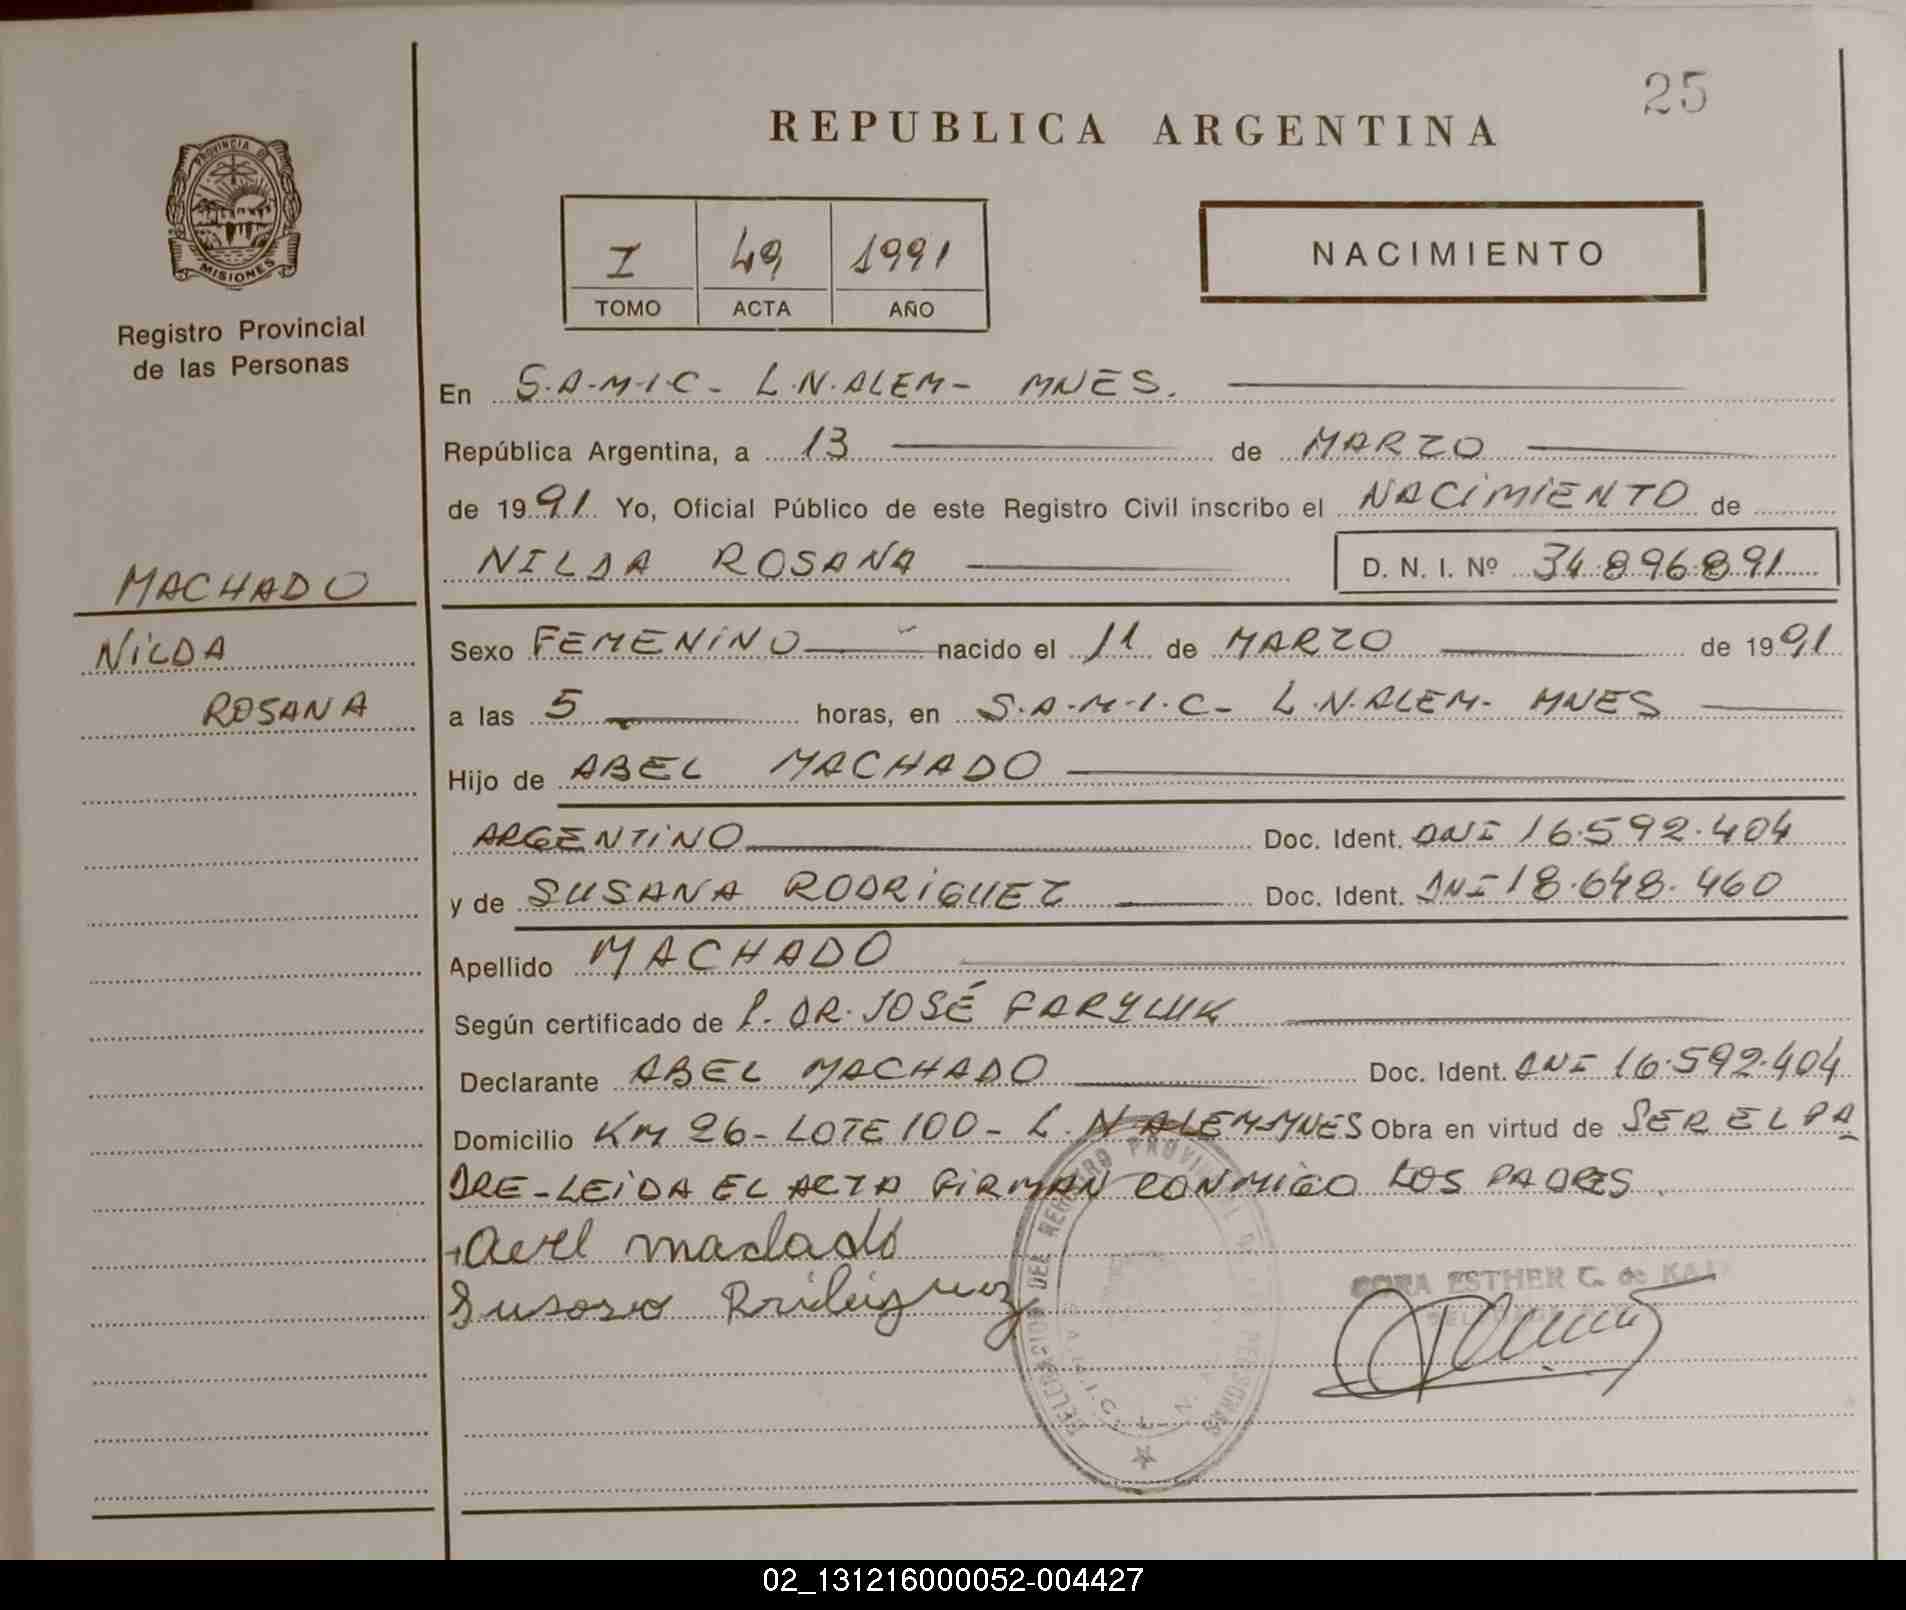 25
REPUBLICA ARGENTINA
PROVINCIA DE
MISIONES
Registro Provincial
de las Personas
I 49 1991
TOMO ACTA AÑO
NACIMIENTO
En S.A-M-I-C- L.N.ALEM- MNES.
República Argentina, a 13 de MARZO
de 1991 Yo, Oficial Público de este Registro Civil inscribo el NACIMIENTO de
NILDA ROSANA D. N. I. Nº 34.896.891
MACHADO
NILDA
ROSANA
Sexo FEMENINO nacido el 11 de MARZO de 1991
a las 5 horas, en S.A-M-I-C- L.N.ALEM- MNES
Hijo de ABEL MACHADO
ARGENTINO Doc. Ident. DNI 16.592.404
y de SUSANA RODRIGUEZ Doc. Ident. DNI 18.648.460
Apellido MACHADO
Según certificado de P. DR. JOSÉ FARYLUK
Declarante ABEL MACHADO Doc. Ident. DNI 16.592.404
Domicilio KM 26- LOTE 100- L.N ALEM-MNES Obra en virtud de SER EL PA
DRE-LEIDA EL ACTA FIRMAN CONMIGO LOS PADRES.
DEL REGISTRO PROVINCIAL DE LAS PERSONAS
ESTHER C. de
02_131216000052-004427